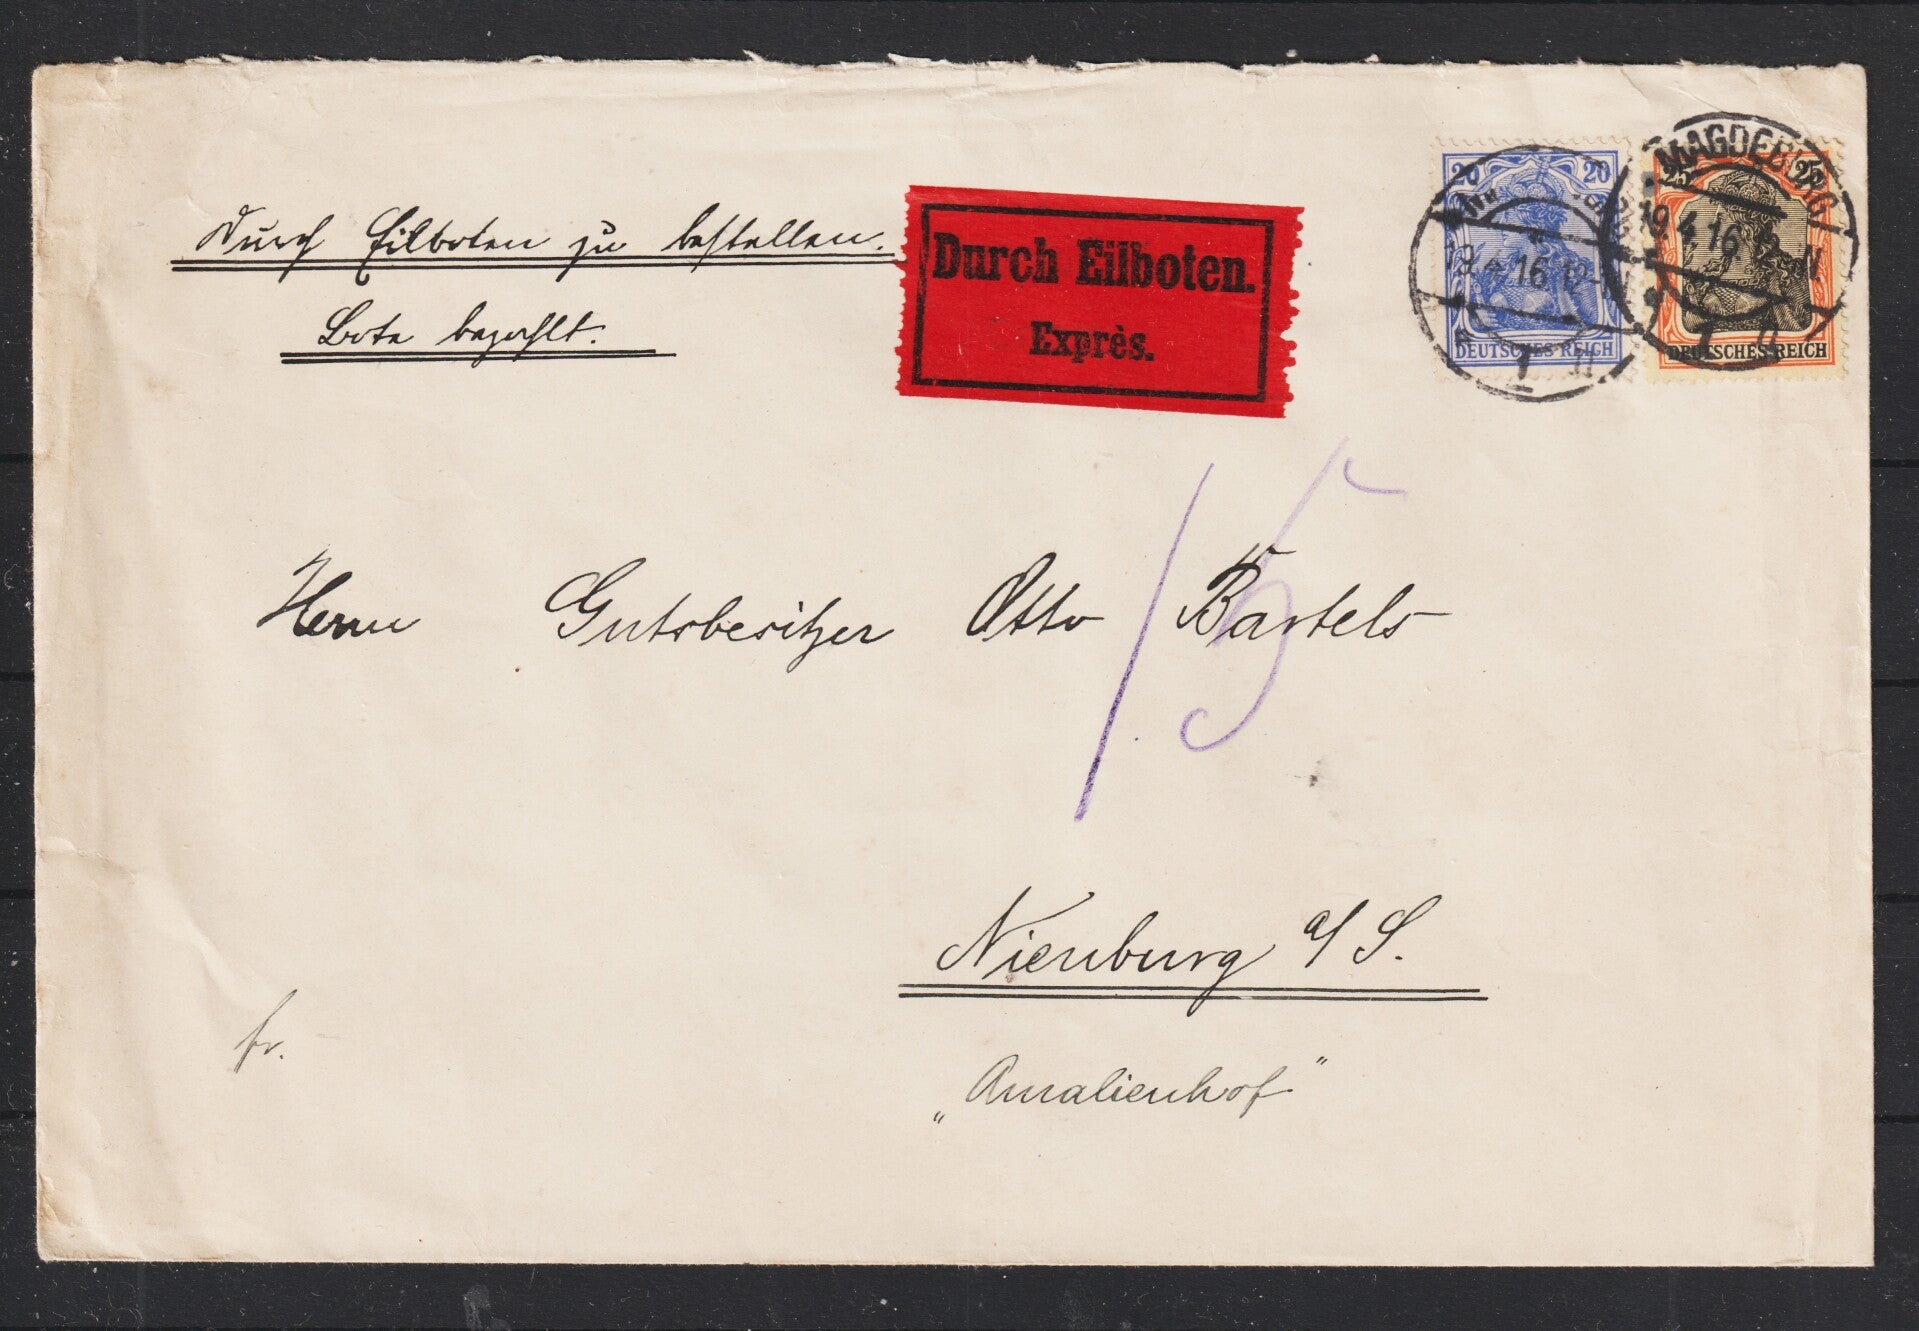 Durch Eilboten zu bestellen.
Bote bezahlt.
Durch Eilboten.
Exprès.
20 20
DEUTSCHES REICH
19.4.16 12-
1
25 25
DEUTSCHES REICH
MAGDEBURG
19.4.16 12- N
1
15
Herrn Gutsbesitzer Otto Bartels
Nienburg a/S.
fr.
„Amalienhof"